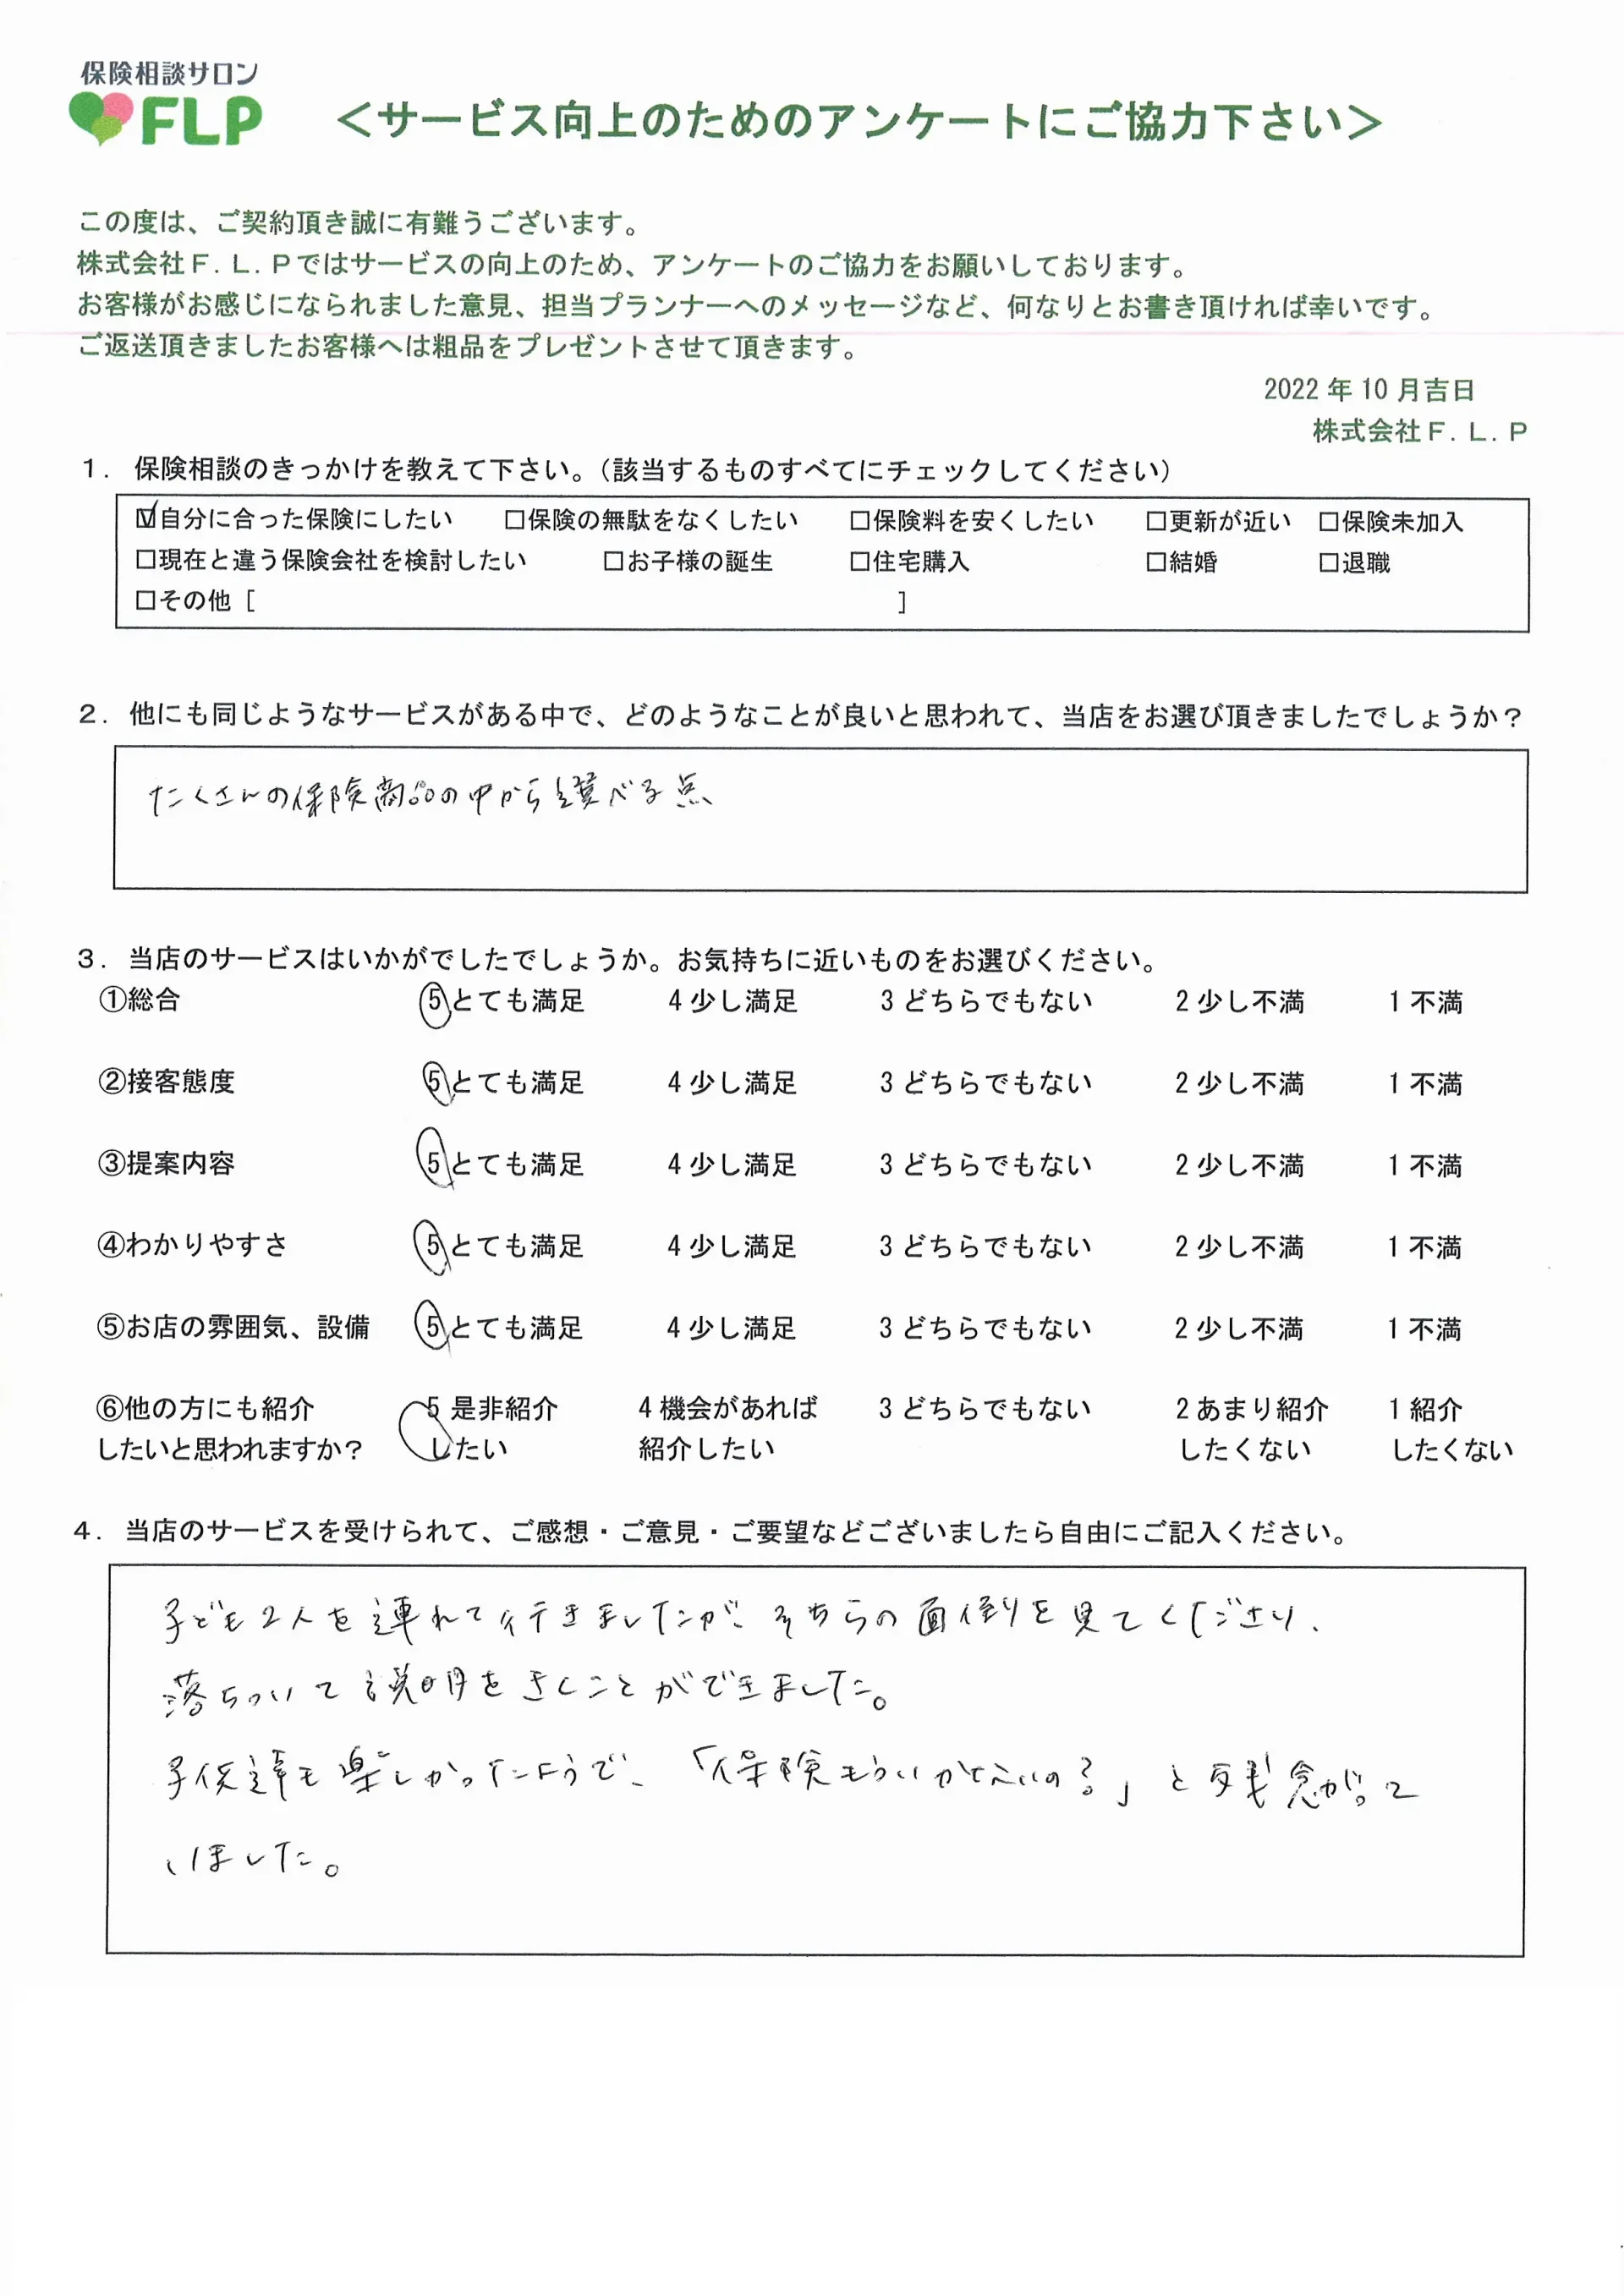 保険相談サロン
FLP
＜サービス向上のためのアンケートにご協力下さい＞
この度は、ご契約頂き誠に有難うございます。
株式会社Ｆ.Ｌ.Ｐではサービスの向上のため、アンケートのご協力をお願いしております。
お客様がお感じになられました意見、担当プランナーへのメッセージなど、何なりとお書き頂ければ幸いです。
ご返送頂きましたお客様へは粗品をプレゼントさせて頂きます。
2022 年 10 月吉日
株式会社Ｆ.Ｌ.Ｐ
１．保険相談のきっかけを教えて下さい。（該当するものすべてにチェックしてください）
☑自分に合った保険にしたい □保険の無駄をなくしたい □保険料を安くしたい □更新が近い □保険未加入
□現在と違う保険会社を検討したい □お子様の誕生 □住宅購入 □結婚 □退職
□その他［ ］
２．他にも同じようなサービスがある中で、どのようなことが良いと思われて、当店をお選び頂きましたでしょうか？
たくさんの保険商品の中から選べる点
３．当店のサービスはいかがでしたでしょうか。お気持ちに近いものをお選びください。
①総合 5 とても満足 4 少し満足 3 どちらでもない 2 少し不満 1 不満
②接客態度 5 とても満足 4 少し満足 3 どちらでもない 2 少し不満 1 不満
③提案内容 5 とても満足 4 少し満足 3 どちらでもない 2 少し不満 1 不満
④わかりやすさ 5 とても満足 4 少し満足 3 どちらでもない 2 少し不満 1 不満
⑤お店の雰囲気、設備 5 とても満足 4 少し満足 3 どちらでもない 2 少し不満 1 不満
⑥他の方にも紹介 5 是非紹介 4 機会があれば 3 どちらでもない 2 あまり紹介 1 紹介
したいと思われますか？ したい 紹介したい したくない したくない
４．当店のサービスを受けられて、ご感想・ご意見・ご要望などございましたら自由にご記入ください。
子ども2人を連れて行きましたが、そちらの面倒りを見てくださり、
落ちついて説明をきくことができました。
子供達も楽しかったようで、「保険もういかないの?」と残念がって
いました。